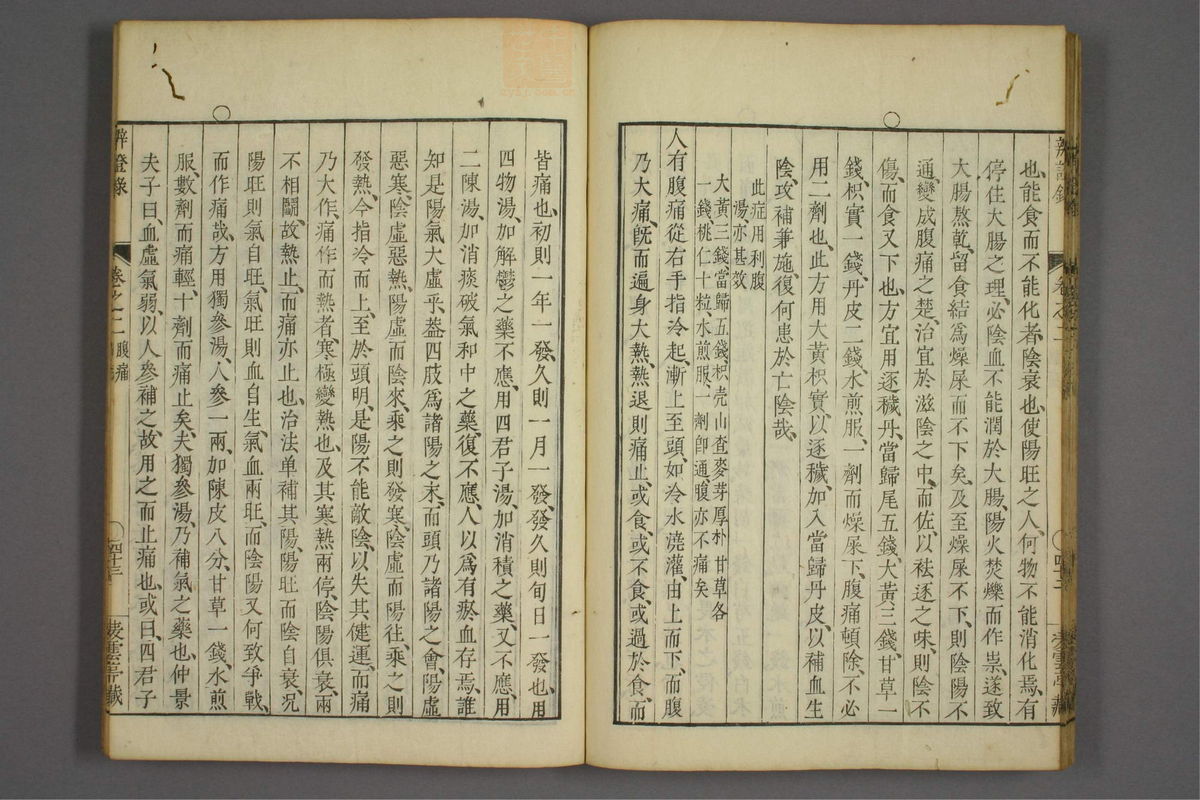 也、能食而不能化者、陰衰也、使陽旺之人、何物不能消化焉、有
停住大腸之理、必陰血不能潤於大腸、陽火焚爍而作祟、遂致
大腸熬乾、留食結為燥屎而不下矣、及至燥屎不下、則陰陽不
通、變成腹痛之楚、治宜於滋陰之中、而佐以祛逐之味、則陰不
傷、而食又下也、方宜用逐穢丹、當歸尾五錢、大黃三錢、甘草一
錢、枳實一錢、丹皮二錢、水煎服、一劑而燥屎下、腹痛頓除、不必
用二劑也、此方用大黃枳實、以逐穢、加入當歸丹皮、以補血生
陰、攻補兼施、復何患於亡陰哉、
此症用利腹
湯、亦甚效
大黃三錢當歸五錢、枳壳山查麥芽厚朴甘草各
一錢、桃仁十粒、水煎服、一劑即通、腹亦不痛矣
人有腹痛從右手指冷起、漸上至頭、如冷水澆灌、由上而下、而腹
乃大痛、既而遍身大熱、熱退則痛止、或食、或不食、或過於食、而
皆痛也、初則一年一發、久則一月一發、發久則旬日一發也、用
四物湯、加解鬱之藥不應、用四君子湯、加消積之藥、又不應、用
二陳湯、加消痰破氣和中之藥、復不應、人以為有瘀血存焉、誰
知是陽氣大虛乎、蓋四肢為諸陽之末、而頭乃諸陽之會、陽虛
惡寒、陰虛惡熱、陽虛而陰來、乘之則發寒、陰虛而陽往、乘之則
發熱、今指冷而上、至於頭、明是陽不能敵陰、以失其健運、而痛
乃大作、痛作而熱者、寒極變熱也、及其寒熱兩停、陰陽俱衰、兩
不相鬪、故熱止、而痛亦止也、治法单補其陽、陽旺而陰自衰、况
陽旺則氣自旺、氣旺則血自生、氣血兩旺、而陰陽又何致爭戰、
而作痛哉、方用獨參湯、人參一兩、加陳皮八分、甘草一錢、水煎
服、數劑而痛輕、十劑而痛止矣、夫獨參湯、乃補氣之藥也、仲景
夫子曰、血虛氣弱、以人參補之、故用之而止痛也、或曰、四君子
辨證錄
卷之二
腹痛
四十三